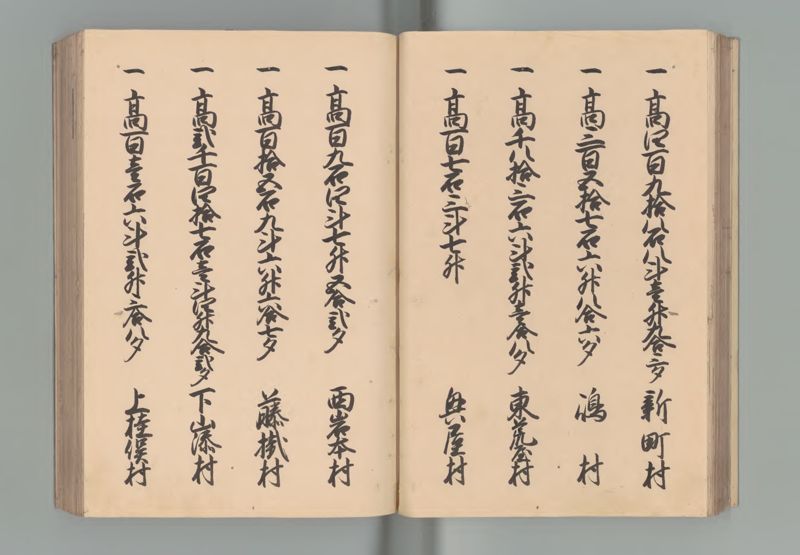 一 高四百九拾八石八斗壱升九合三夕 新町村
一 高三百五拾七石六升八合六夕 鴻村
一 高千八拾三石六斗弐升壱合八夕 東荒屋村
一 高百七石三斗七升 興屋村
一 高百九石四斗七升五合弐夕 西岩本村
一 高百拾五石九斗六升六合七夕 藤掛村
一 高弐千百四拾七石壱斗四升九合弐夕 下山添村
一 高百壱石六斗弐升三合八夕 上桂俣村